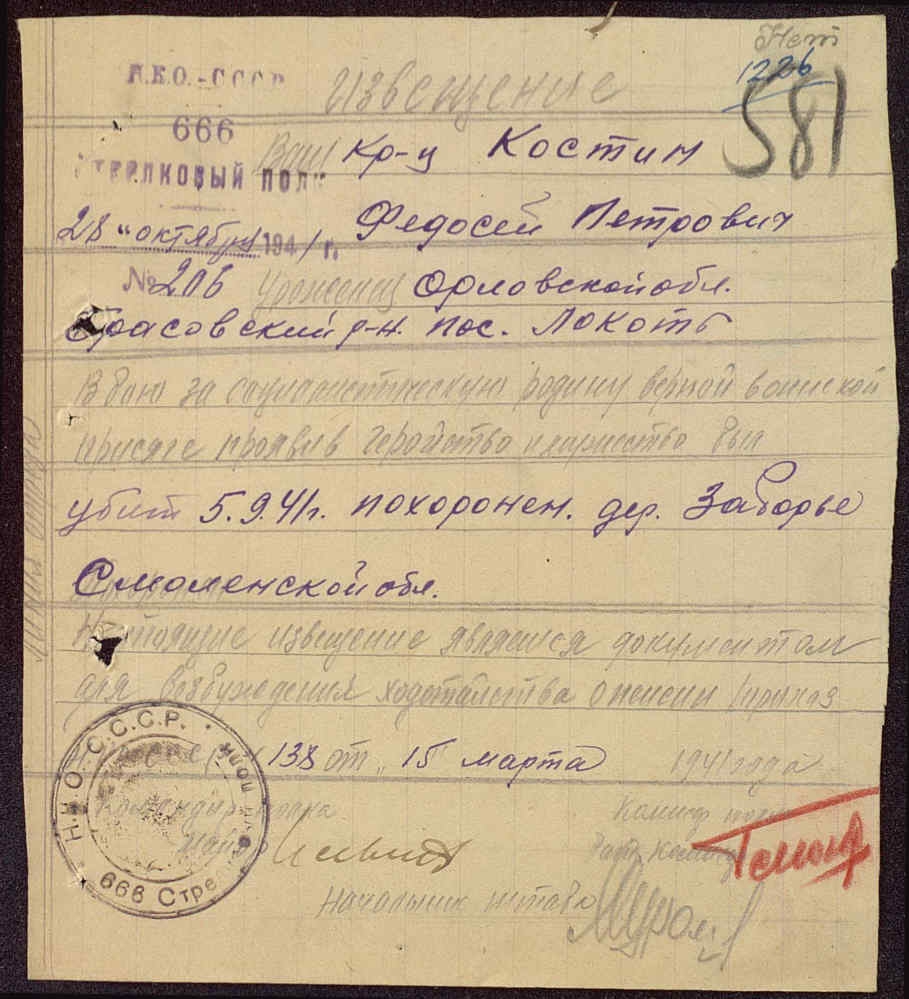 Нет
1226
581
Н.К.О.-СССР
Извещение
666
СТРЕЛКОВЫЙ ПОЛК
Ваш кр-ц Костин
Федосей Петрович
28 " октября 1941 г.
№ 206 уроженец Орловской обл.
Брасовский р-н. пос. Локоть
В бою за социалистическую родину верной воинской
присяге проявив геройство и мужество был
убит 5.9.41г. похоронен. дер. Заборье
Смоленской обл.
Настоящие извещение является документом
для возбуждения ходатайства о пенсии /приказ
138 от " 15 марта 1941 года
Командир полка
Майор
Комиссар полка
Начальник штаба
Н.К.О. С.С.С.Р.
666 Стре